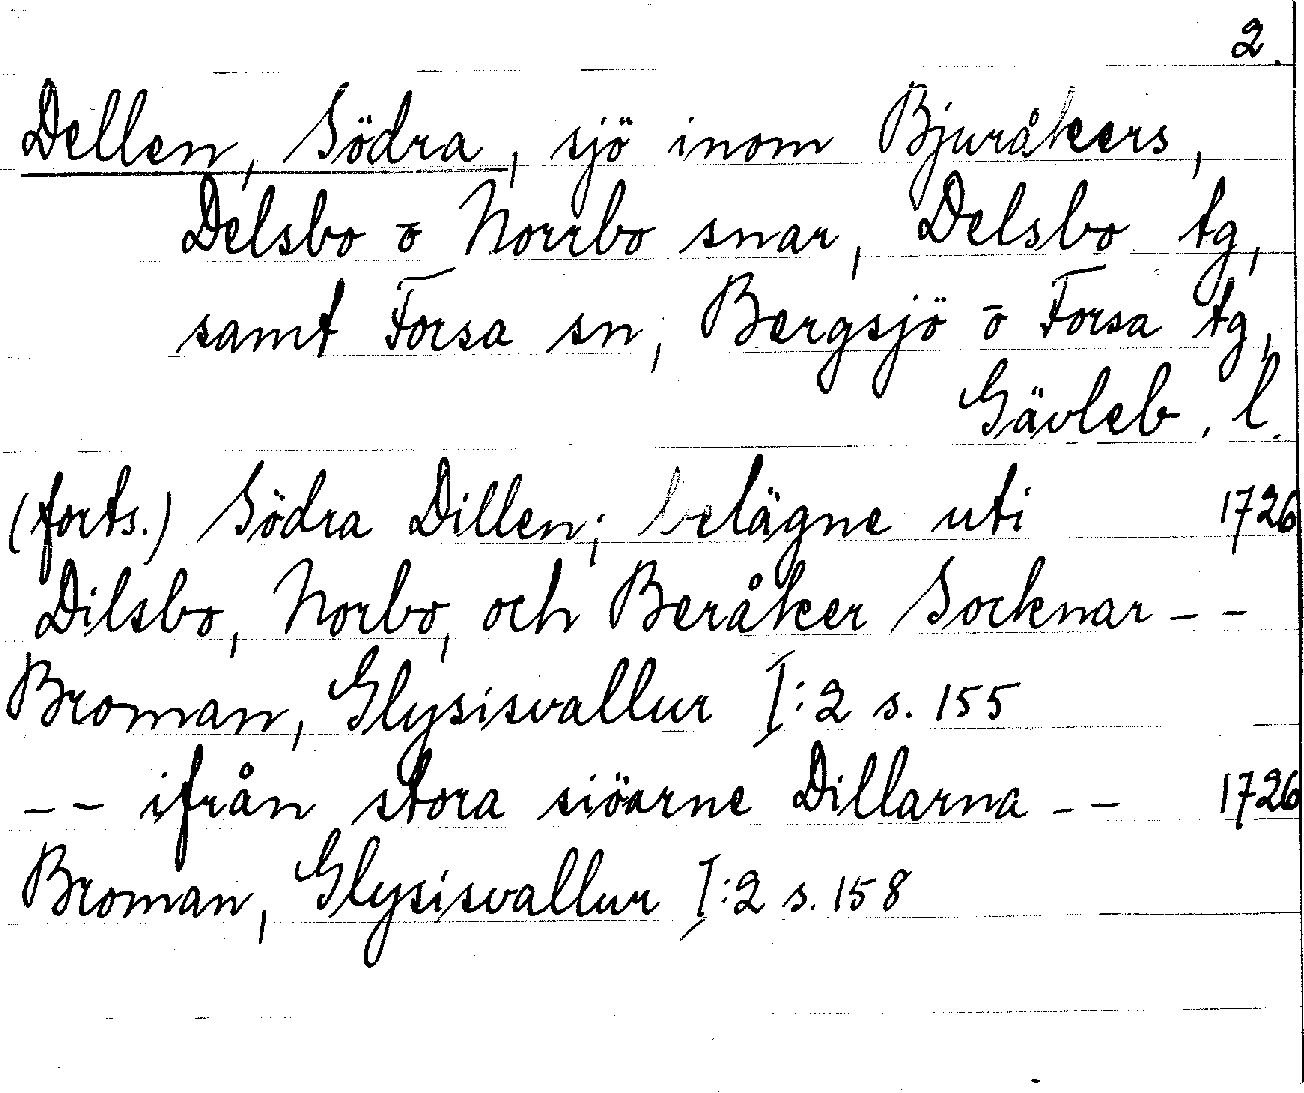 2.
Dellen, Södra, sjö inom Bjuråkers,
Delsbo o Norrbo snar, Delsbo tg,
samt Forsa sn, Bergsjö o Forsa tg,
Gävleb. l.
(forts.) Södra Dillen; belägne uti 1726
Dilsbo, Norbo, och Beråker Socknar - -
Broman, Glysisvallur I:2 s. 155
- - ifrån stora siöarne Dillarna - - 1726
Broman, Glysisvallur I:2 s. 158